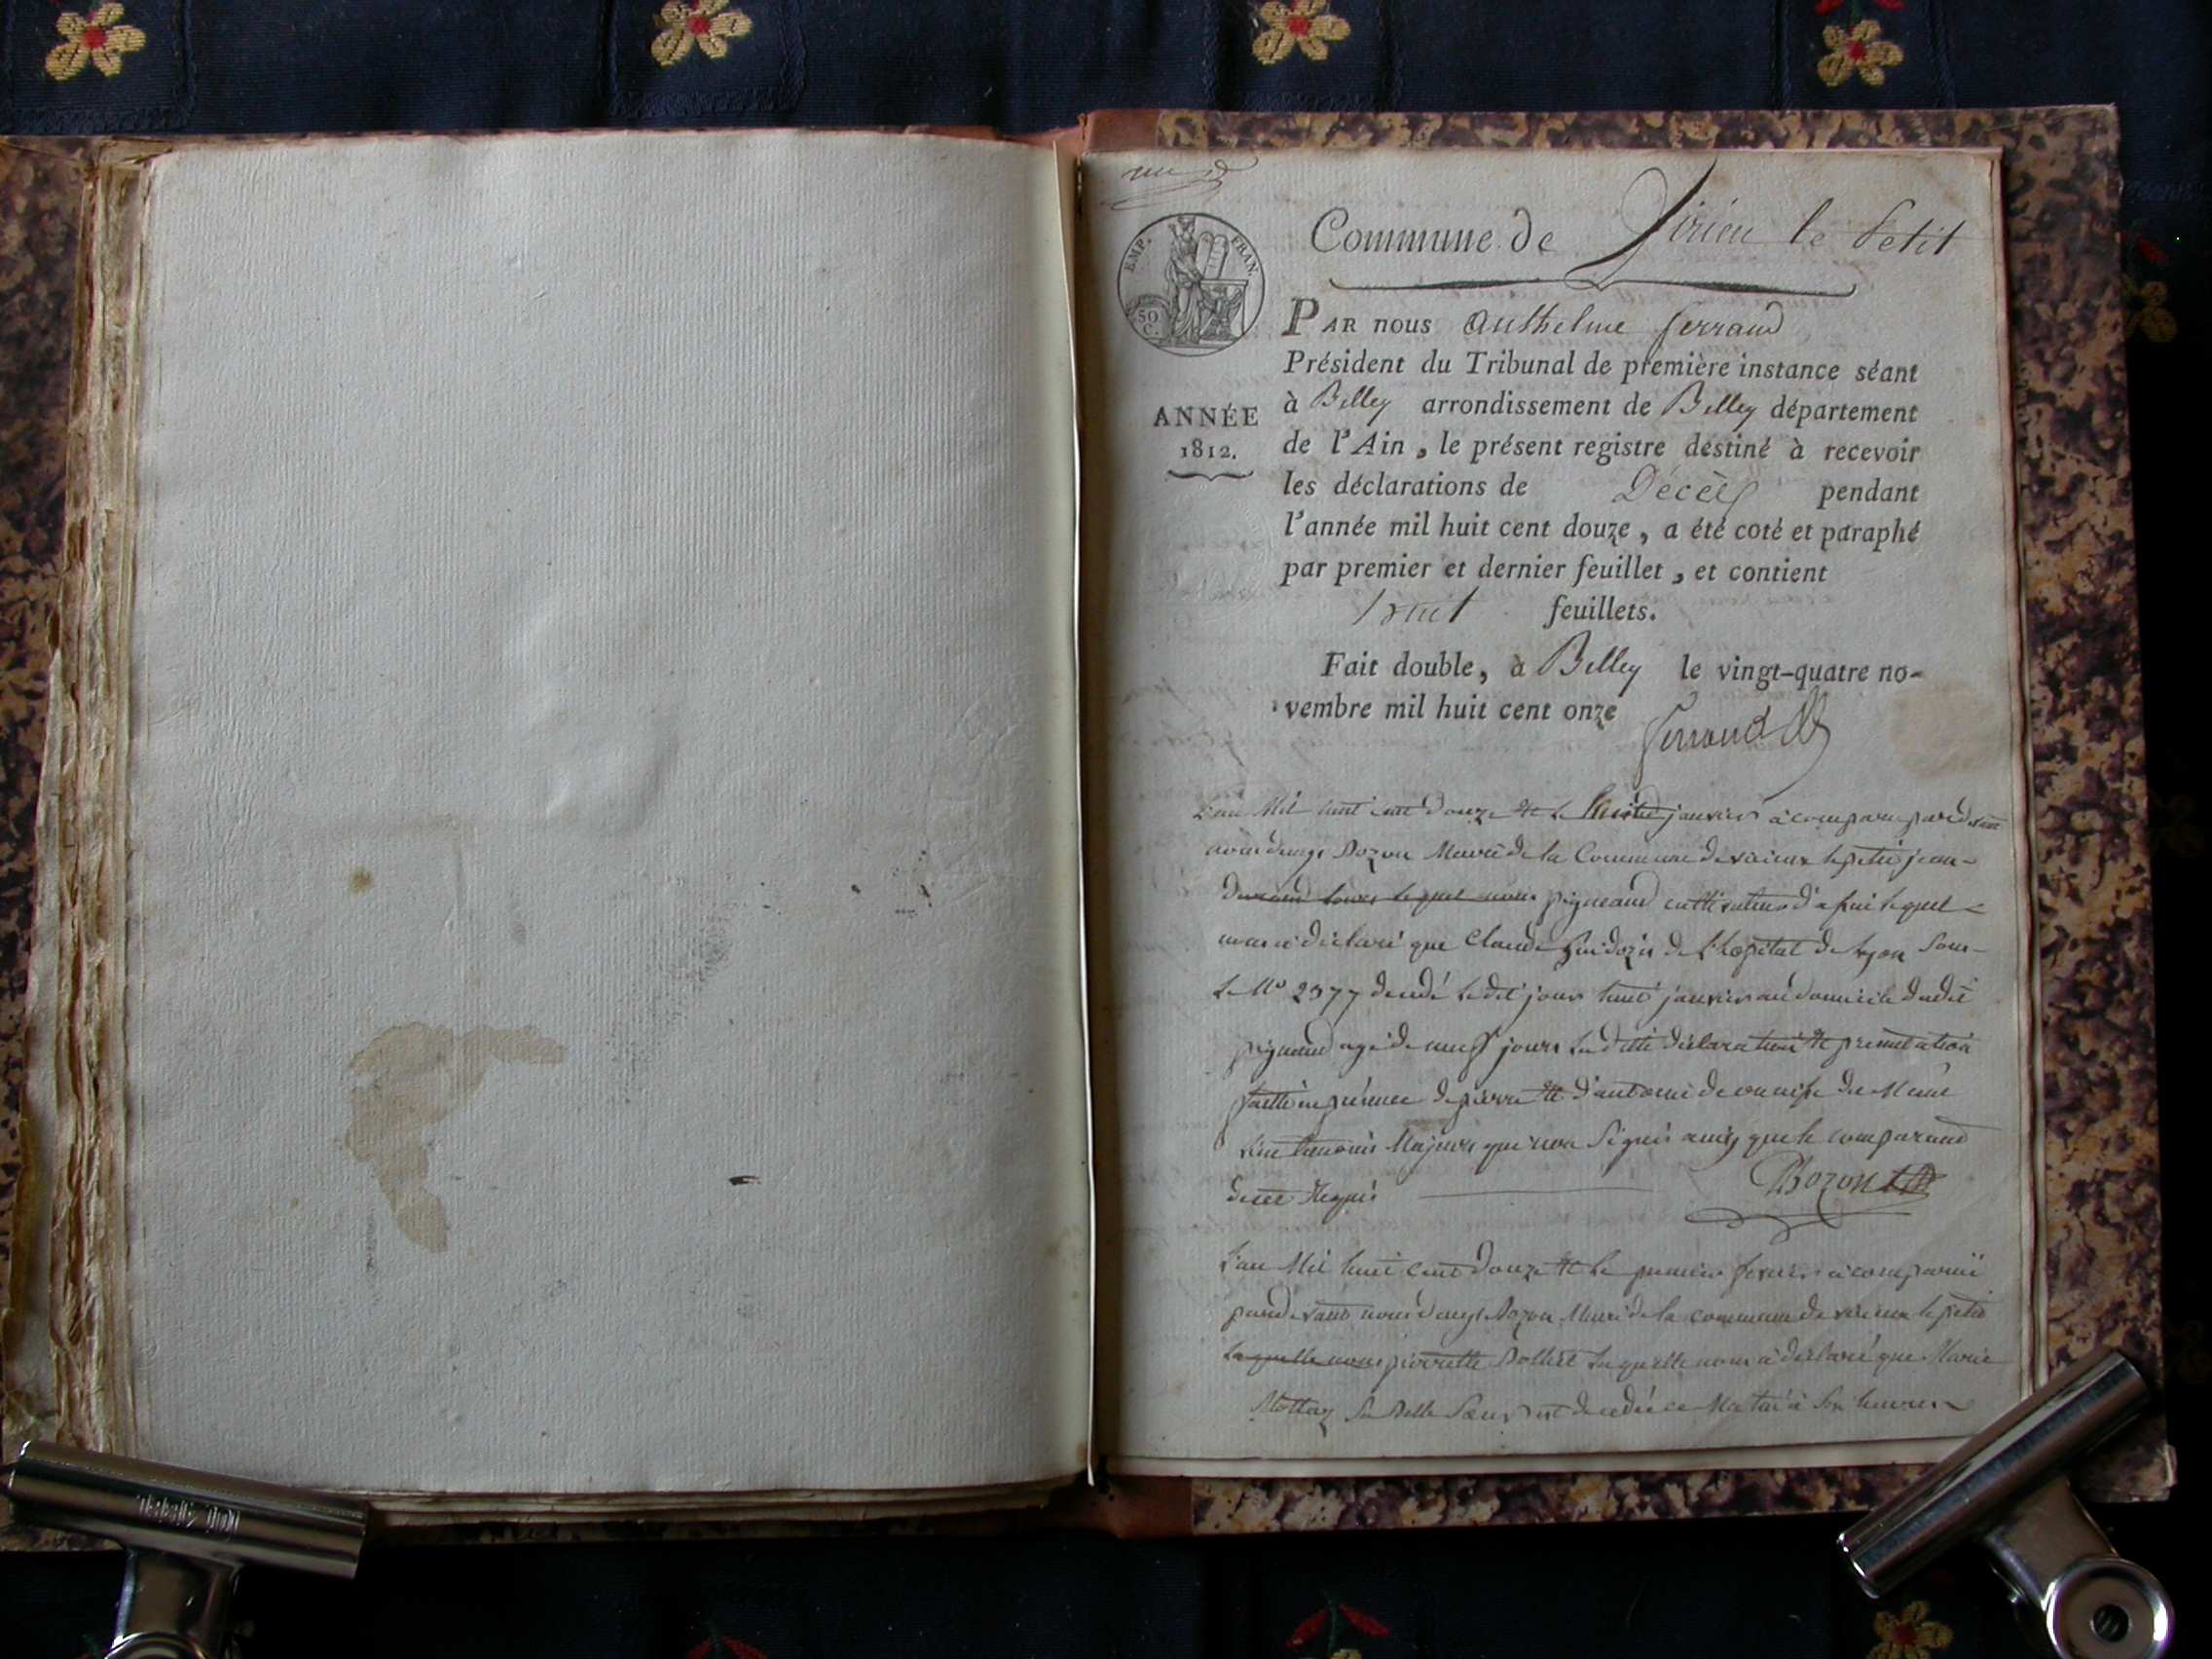 EMP. FRAN.
50
C.
Commune de Virieu le Petit
ANNÉE
1812.
PAR nous Anthelme ferrand
Président du Tribunal de première instance séant
à Belley arrondissement de Belley département
de l'Ain, le présent registre destiné à recevoir
les déclarations de Décès pendant
l'année mil huit cent douze, a été coté et paraphé
par premier et dernier feuillet, et contient
huit feuillets.
Fait double, à Belley le vingt-quatre no-
vembre mil huit cent onze
ferrand
L'an Mil huit cent douze et le huit janvier à comparu pardevant
nous Bozon Maire de la Commune de virieux le petit jean
lequel nous pigneaud cultivateur lequel
nous à déclaré que Claude de l'hopital de lyon sous
Le No 2377 décédé ledit jour huit janvier au domicile dudit
pignaud agé de jours La ditte déclaration et presentation
faitte en présence de pierre et d'antoine de du Meme
Lieu temoins Majeurs que le comparand
de ce Requis
Bozon
L'an Mil huit Cent douze et le premier fevrier à comparue
pardevant nous Bozon Maire de la commune de virieux le petit
Laquelle nous pierrette Bollet Laquelle nous à déclaré que Marie
Mottaz Sa Belle Sœur est decedée ce Matin à Six heures